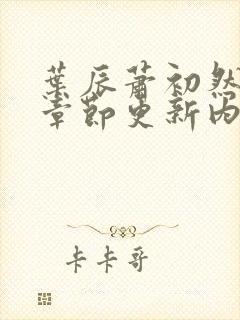 葉辰蕭初然
章節更新内
卡卡哥